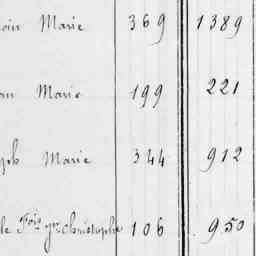 Marie 369 1389
Marie 199 221
Marie 344 912
le Fois Christophe 106 950